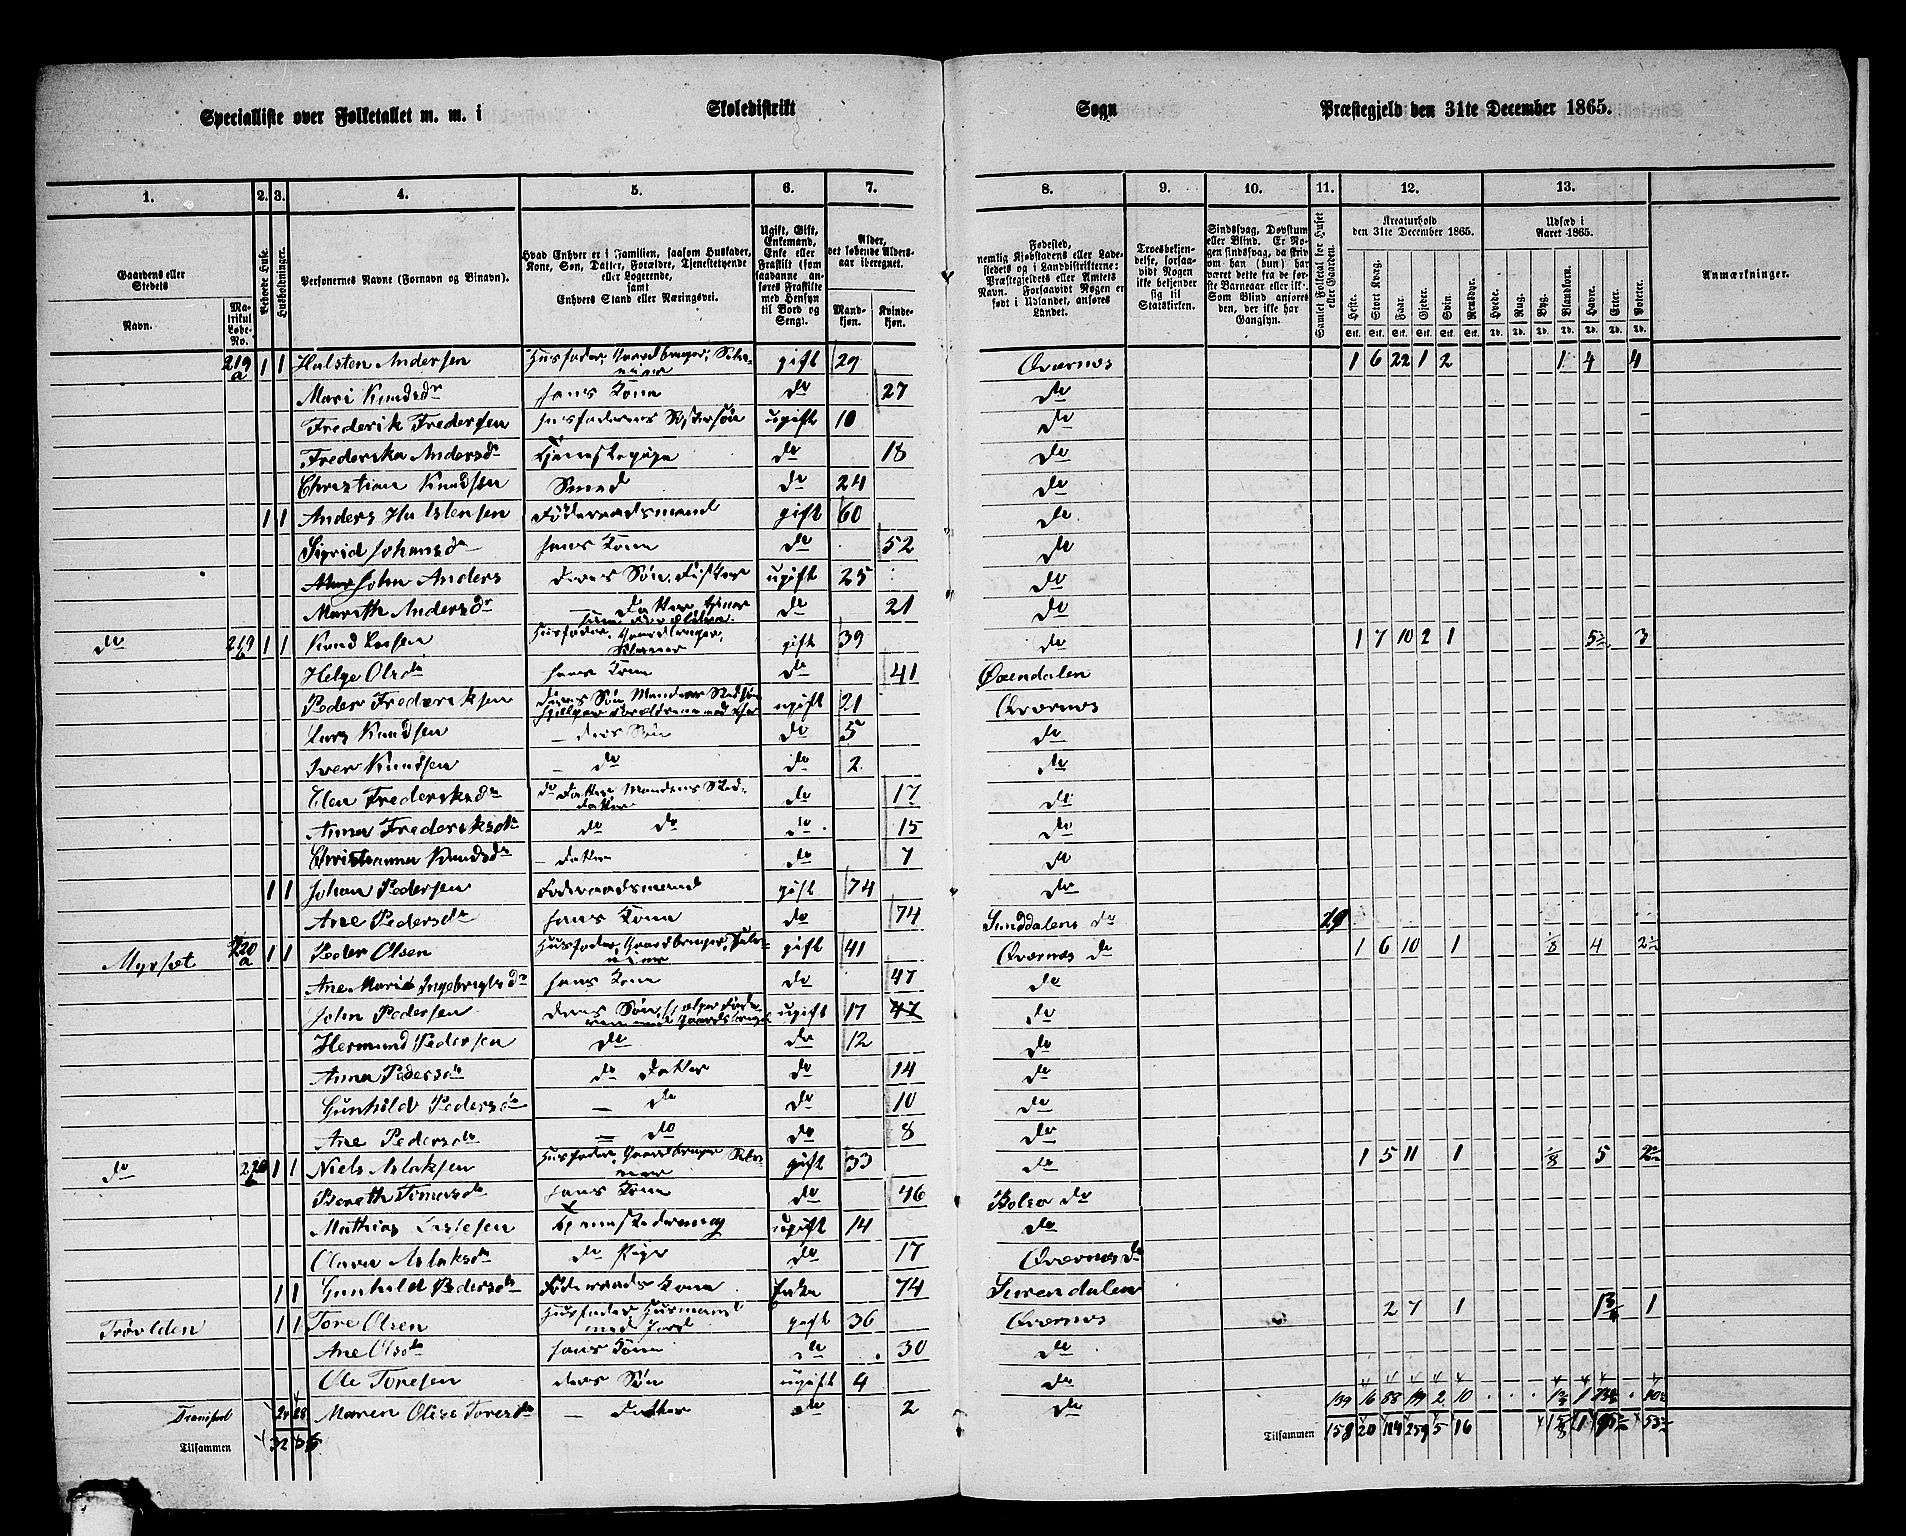 Specialliste over Folketallet m. m. i Skoledistrikt Sogn Præstegjeld den 31te December 1865.
1. 2. 3. 4. 5. 6. 7. 8. 9. 10. 11. 12. 13.
Gaardens eller Stedets Navn. Matrikul Løbe-No. Beboede Huse. Husholdninger. Personernes Navne (Fornavn og Binavn). Hvad Enhver er i Familien, saasom Husfader, Kone, Søn, Datter, Forældre, Tjenestetyende eller Logerende, samt Enhvers Stand eller Næringsvei. Ugift, Gift, Enkemand, Enke eller Fraskilt (som saadanne anføres Fraskilte med Hensyn til Bord og Seng). Alder, det løbende Aldersaar iberegnet. Mandkjøn. Kvindekjøn.
Fødested, nemlig Kjøbstadens eller Ladestedets og i Landdistrikterne: Præstegjeldets eller Amtets Navn. Forsaavidt Nogen er født i Udlandet, anføres Landet. Troesbekjendelse, forsaavidt Nogen ikke bekjender sig til Statskirken. Sindssvag, Døvstum eller Blind. Samlet Folketal for Huset eller Gaarden. Kreaturhold den 31te December 1865. Heste. Stort Kvæg. Faar. Gjeder. Svin. Rensdyr. Udsæd i Aaret 1865. Hvede. Rug. Byg. Blandkorn. Havre. Erter. Poteter. Anmærkninger.
219 a 1 1 Halsten Andersen Husfader, Gaardbruger, gift 29 Qværnes 1 6 22 1 2 1 4 4
Mari Knudsdr hans Kone do 27 do
Frederik Fredersen husfaderens Søstersøn ugift 10 do
Frederika Andersdr Tjenestepige do 18 do
Christian Knudsen Smed do 24 do
1 1 Anders Halstensen Føderaadsmand gift 60 do
Sigrid Johansdr hans Kone do 52 do
John Anders deres Søn, Fisker ugift 25 do
Marith Andersdr Datter, tjener do 21 do
do 219 b 1 1 Knud Larsen Husfader, Gaardbruger, gift 39 do 1 7 10 2 1 3
Helge Olsdr hans Kone do 41 Øxendalen
Peder Frederiksen deres Søn Mandens Stedsøn ugift 21 Qværnes
Lars Knudsen – deres Søn do 5 do
Iver Knudsen – do do 2 do
Elen Frederiksdr do Datter Mandens Steddatter do 17 do
Anna Frederiksdr do do do 15 do
Christianna Knudsdr – Datter do 7 do
1 1 Johan Pedersen Føderaadsmand gift 74 do
Ane Pedersdr hans Kone do 74 Sunddalens do 29
Myrset 220 a 1 1 Peder Olsen Husfader, Gaardbruger, gift 41 Qværnes do 1 6 10 1 1/8 4 2½
Ane Marie Ingebrigtsdr hans Kone do 47 do
John Pedersen deres Søn, ugift 17 47 do
Hermund Pedersen do do 12 do
Anna Pedersdr do Datter do 14 do
Gunhild Pedersdr – do do 10 do
Ane Pedersdr – do do 8 do
do 220 b 1 1 Niels Aslaksen Husfader, Gaardbruger gift 33 do 1 5 11 1 1/8 5
Bereth Timersdr hans Kone do 46 Bolsø do
Mathias Larsesen Tjenestedreng ugift 14 do
Olava Aslaksdr do Pige do 17 Qværnes do
1 1 Gunhild Pedersdr Føderaads Kone Enke 74 Surendalen
Trøvlden 1 1 Tore Olsen Husfader Husmand med Jord gift 36 Qværnes 2 7 1 1
Ane Olsdr hans Kone do 30 do
Ole Toresen deres Søn ugift 4 do
Transport 24 28 Maren Olise Toresdr – Datter do 2 do 139 16 88 2 10
Tilsammen 32 Tilsammen 158 20 114 259 5 16